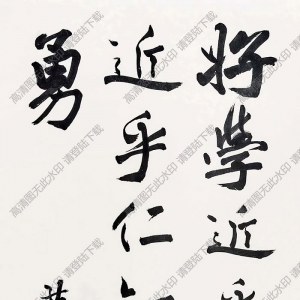 好學近
近乎仁
勇
高清图无此水印 请登陆下载